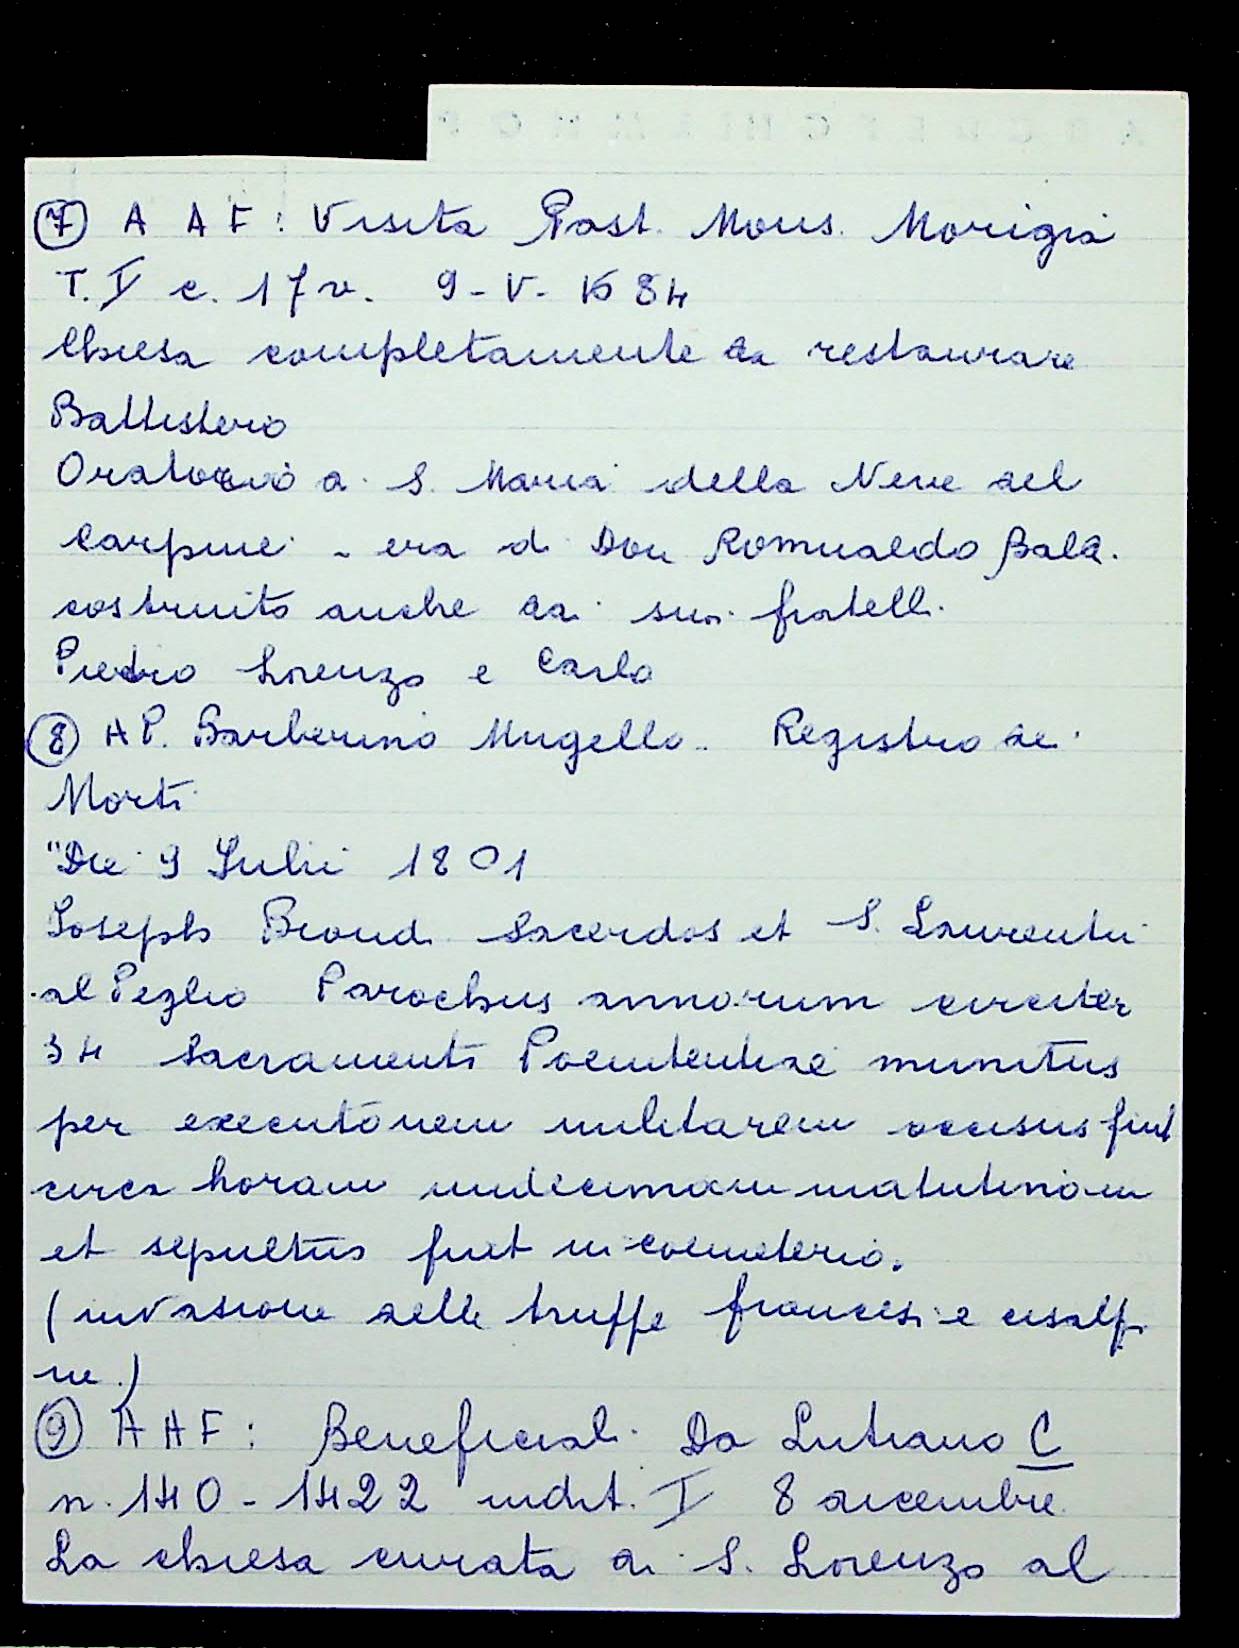 ⑦ A A F: Visita Past. Mons. Morigia
T. V c. 17v. 9-V-1684
Chiesa completamente da restaurare
Battistero
Oratorio a S. Maria della Neve del
Carpine - era di Don Romualdo Bald.
costruito anche dai suoi fratelli
Piedro Lorenzo e Carlo
⑧ AP. Barberino Mugello. Registro dei
Morti
"Die 9 Iulii 1801
Ioseph Biondi Sacerdos et S. Laurentii
al Peglio Parochus annorum circiter
34 Sacramenti Poenitentiae munitus
per executonem militarem occisus fuit
circa horam undecimam matutinam
et sepultus fuit in coemeterio.
(invasione delle truffe francesi e cisalpi
ne.)
⑨ AAF: Beneficiali Da Lutiano C
n. 140-1422 indit. I 8 dicembre
La chiesa curata di S. Lorenzo al